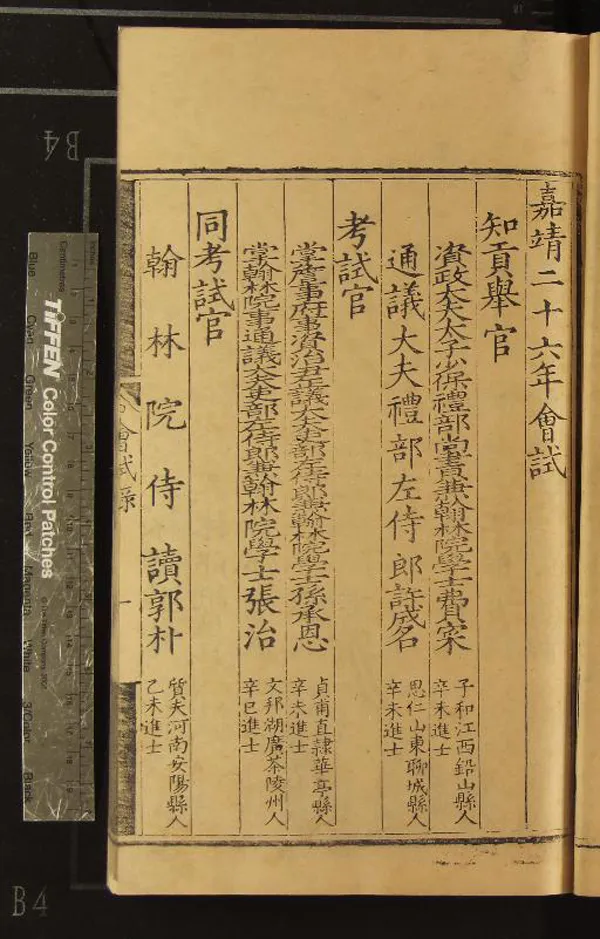 嘉靖二十六年會試
知貢舉官
資政大夫太子少保禮部尚書兼翰林院學士費寀
子和江西鉛山縣人
辛未進士
通議大夫禮部左侍郎許成名
思仁山東聊城縣人
辛未進士
考試官
掌詹事府事資治尹正議大夫吏部左侍郎兼翰林院學士孫承恩
貞甫直隸華亭縣人
辛未進士
掌翰林院事通議大夫吏部左侍郎兼翰林院學士張治
文邦湖廣茶陵州人
辛巳進士
同考試官
翰林院侍讀郭朴
質夫河南安陽縣人
乙未進士
會試录
一
B4
B4
TIFFEN Color Control Patches
Centimetres
Blue
Cyan
Green
Yellow
Red
Magenta
White
3/Color
Black